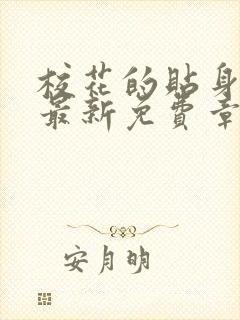 校花的贴身
最新免費章
安月明